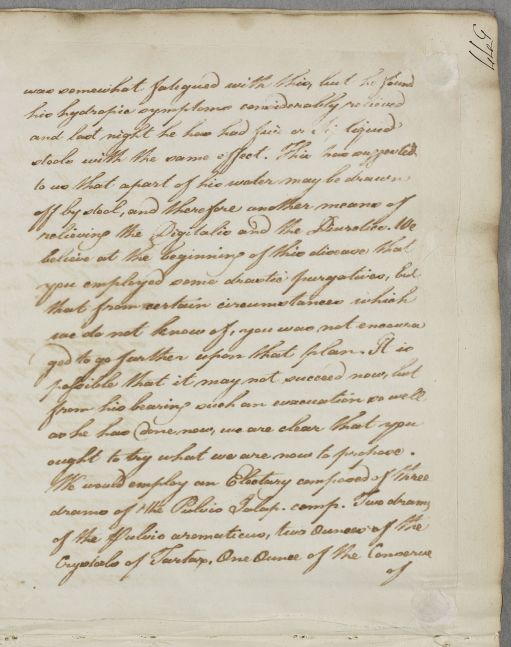 544
was somewhat fatigued with this, but he found
his hydropic symptoms considerably relieved
and last night he has had five or Si liquid
stools with the same effect. This has suggested
to us that apart of his water may be drawn
off by stool, and therefore another means of
relieving the Digitalis and the Diuretic. We
believe at the beginning of this disease that
you employed some drastic purgatives, but
that from certain circumstances which
we do not know of, you was not encoura
ged to go farther upon that plan. It is
possible that it may not succeed now, but
from his bearing such an evacuation so well
as he has done now, we are clear that you
ought to try what we are now to propose.
We would employ an Electary composed of three
drams of the Pulvis Jalap. comp. Two drams
of the Pulvis aromaticus, two ounces of the
Crystals of Tartar, One Ounce of the Conserve
of